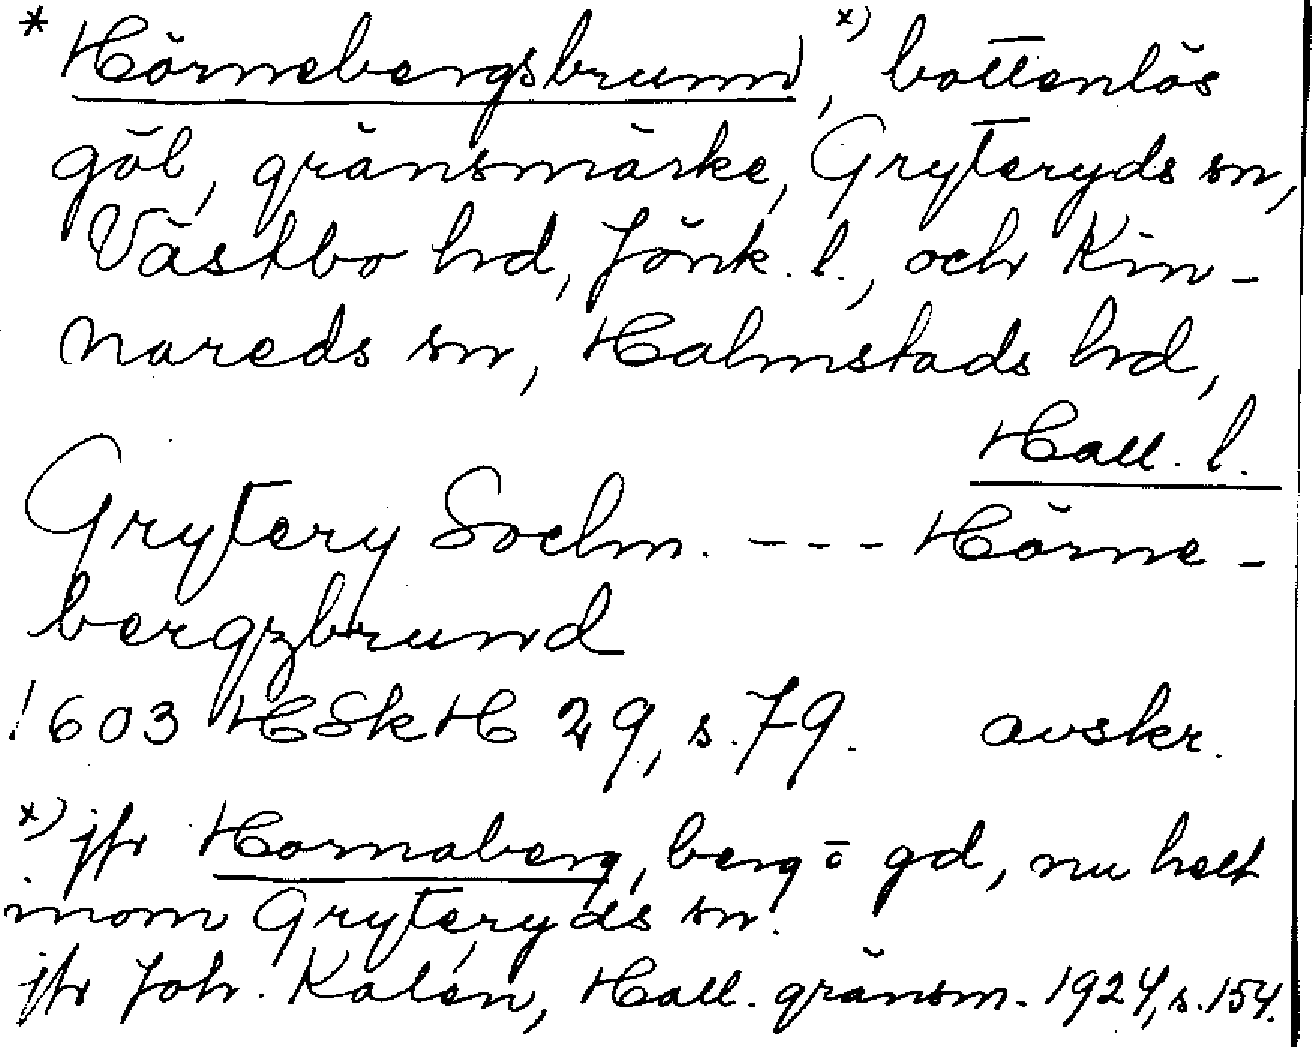 * Hörnebergsbrunn, x) bottenlös
göl, gränsmärke, Gryteryds sn,
Västbo hd, Jönk. l., och Kin-
nareds sn, Halmstads hd,
Hall. l.
Grytery Sochn. - - - Hörne-
bergzbrund
1603 HSkH 29, s. 79. avskr.
x) jfr Hornaberg, berg o gd, nu helt
inom Gryteryds sn.
jfr Joh. Kalén, Hall. gränsm. 1924, s. 154.